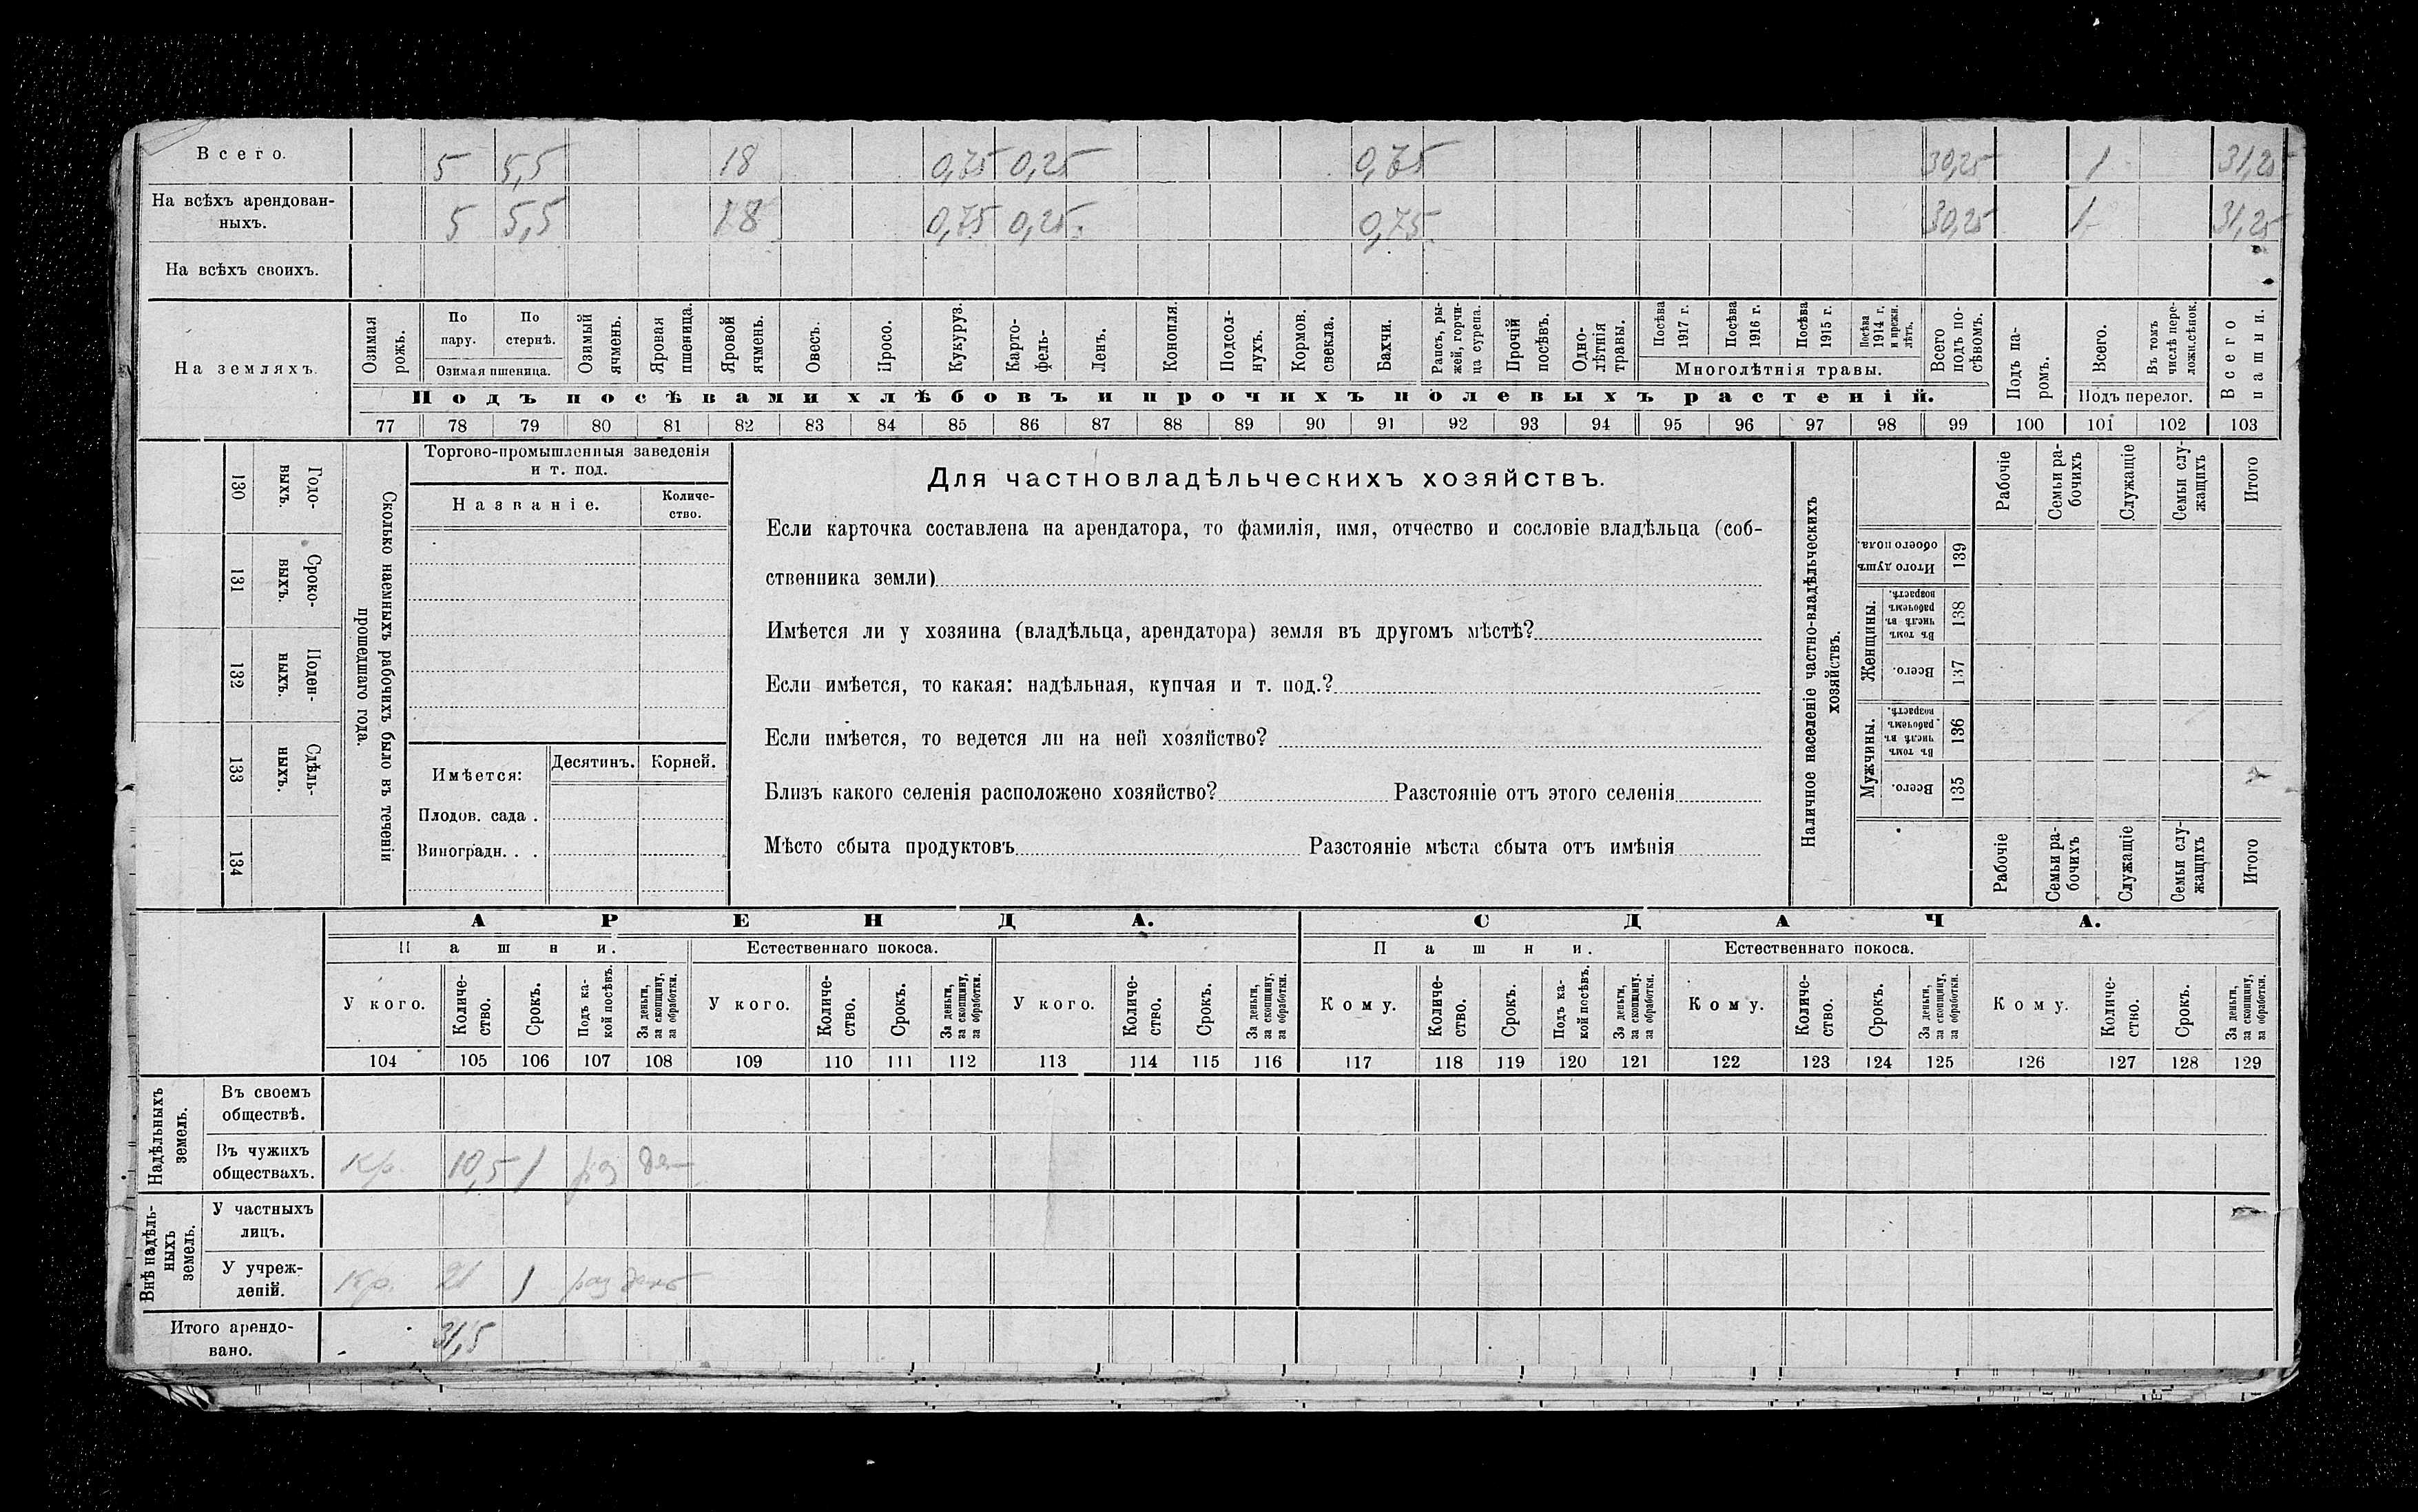 Всего. 5 5,5 18 0,75 0,25 0,75 30,25 1 31,25
На всѣхъ арендован-
ныхъ. 5 5,5 18 0,75 0,25 0,75 30,25 1 31,25
На всѣхъ своихъ.
На земляхъ.
Озимая рожь.
По пару.
По стернѣ.
Озимая пшеница.
Озимый ячмень.
Яровая пшеница.
Яровой ячмень.
Овесъ.
Просо.
Кукуруз.
Карто-
фель-
Ленъ.
Конопля.
Подсол-
нухъ.
Кормов. свекла.
Бахчи.
Рапсъ, ры-
жей, горчи-
ца сурепа.
Прочій посѣвъ.
Одно-
лѣтнія травы.
Посѣва 1917 г.
Посѣва 1916 г.
Посѣва 1915 г.
Посѣва 1914 г. и прежн. лѣтъ.
Многолѣтнія травы.
Всего подъ по-
сѣвомъ.
Подъ па-
ромъ.
Всего.
Въ томъ числѣ пере-
ложн.сѣнок.
Подъ перелог.
Всего пашни.
Подъ посѣвами хлѣбовъ и прочихъ полевыхъ растеній.
77 78 79 80 81 82 83 84 85 86 87 88 89 90 91 92 93 94 95 96 97 98 99 100 101 102 103
Сколько наемныхъ рабочихъ было въ теченіи
прошедшаго года.
Годо-
выхъ.
130
Сроко-
выхъ.
131
Поден-
ныхъ.
132
Сдѣль-
ныхъ.
133
134
Торгово-промышленныя заведенія
и т. под.
Названіе.
Количе-
ство.
Имѣется:
Десятинъ. Корней.
Плодов. сада .
Виноградн. . .
Для частновладѣльческихъ хозяйствъ.
Если карточка составлена на арендатора, то фамилія, имя, отчество и сословіе владѣльца (соб-
ственника земли)
Имѣется ли у хозяина (владѣльца, арендатора) земля въ другомъ мѣстѣ?
Если имѣется, то какая: надѣльная, купчая и т. под.?
Если имѣется, то ведется ли на ней хозяйство?
Близъ какого селенія расположено хозяйство? Разстояніе отъ этого селенія
Мѣсто сбыта продуктовъ Разстояніе мѣста сбыта отъ имѣнія
Наличное населеніе частно-владѣльческихъ
хозяйствъ.
Рабочіе
Семьи ра-
бочихъ
Служащіе
Семьи слу-
жащихъ
Итого
Итого душъ обоего пола.
139
Женщины.
Въ томъ числѣ въ рабочемъ возрастѣ.
138
Всего.
137
Мужчины.
Въ томъ числѣ въ рабочемъ возрастѣ.
136
Всего.
135
Рабочіе
Семьи ра-
бочихъ
Служащіе
Семьи слу-
жащихъ
Итого
АРЕНДА. СДАЧА.
Пашни. Естественнаго покоса. Пашни. Естественнаго покоса.
У кого.
Количе-
ство.
Срокъ.
Подъ ка-
кой посѣвъ.
За деньги, за скопщину, за обработки.
У кого.
Количе-
ство.
Срокъ.
За деньги, за скопщину, за обработки.
У кого.
Количе-
ство.
Срокъ.
За деньги, за скопщину, за обработки.
Кому.
Количе-
ство.
Срокъ.
Подъ ка-
кой посѣвъ.
За деньги, за скопщину, за обработки.
Кому.
Количе-
ство.
Срокъ.
За деньги, за скопщину, за обработки.
Кому.
Количе-
ство.
Срокъ.
За деньги, за скопщину, за обработки.
104 105 106 107 108 109 110 111 112 113 114 115 116 117 118 119 120 121 122 123 124 125 126 127 128 129
Надѣльныхъ земель.
Въ своемъ
обществѣ.
Въ чужихъ
обществахъ. Кр. 10,5 1 раз
Внѣ надѣль-
ныхъ земель.
У частныхъ
лицъ.
У учреж-
деній. Кр. 21 1 раз
Итого арендо-
вано. 31,5